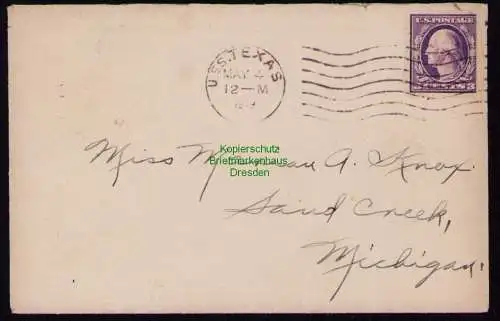 U.S.S. TEXAS
MAY 4
12-M
U.S. POSTAGE
3 CENTS 3
Kopierschutz
Briefmarkenhaus
Dresden
Miss A. Knox
Sand Creek,
Michigan.